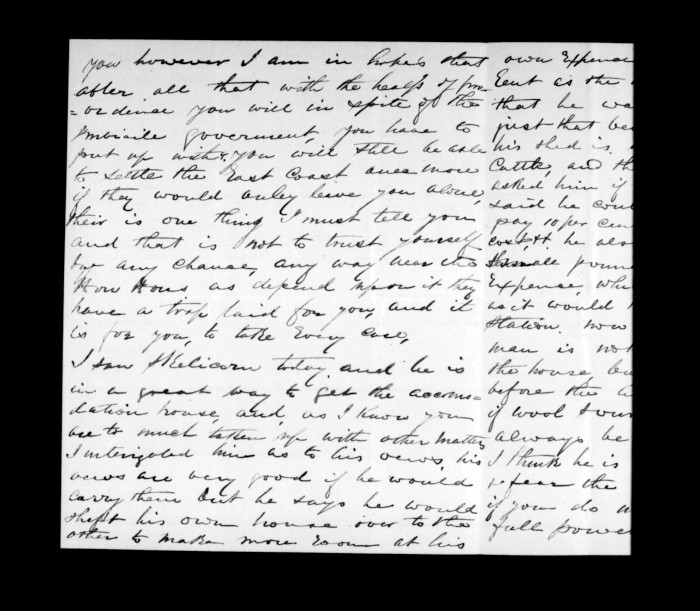 you however I am in hopes that
after all that with the help of prov
=ordence you will in spite of the
Imbicile government, you have to
put up with, you will still be able
to settle the East Coast once more
if they would onley leive you alone,
their is one thing I must tell you
and that is not to trust yourself
by any chance, any way near the
How Hous as depend upon it they
have a trap laid for you, and it
is for you, to take Every care,
I saw Skelicorn today and he is
in a great way to get the accomo=
dation house, and, as I know you
are to much taken up with other matters
I interigated him as to his vews, his
vews are very good if he would
carry them but he says he would
shift his own house over to the
other to make more room at his
own Expence
Eent as the
that he wa
just that be
his shed is,
Cattle, and th
asked him if
said he cou
pay 10 per cen
cost, he als
small pound
Expense, wh
as it would
Station. now
man is not
the house, bu
before the
if wool
always be
I think he is
fear the
if you do
full power